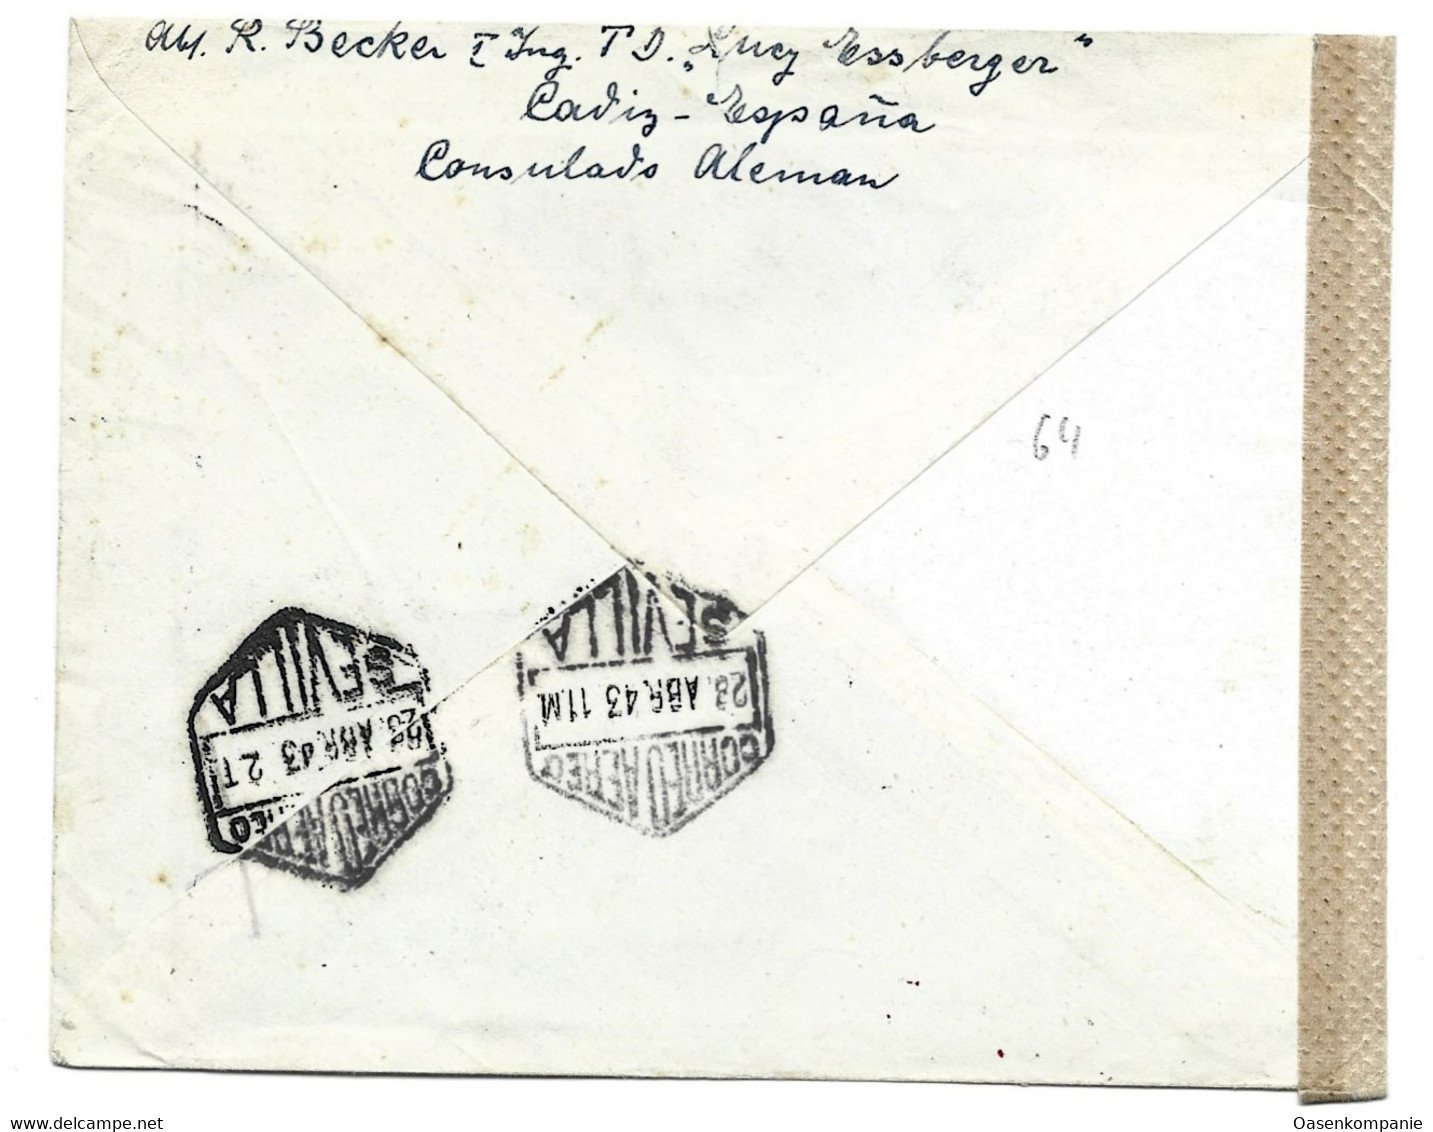 Abs. R. Becker I Ing. T D. „Lucy Essberger"
Cadiz - España
Consulado Aleman
64
SEVILLA
28. ABR. 43 11.M.
CORREO AEREO
SEVILLA
28. ABR. 43 2.T
CORREO AEREO
Oasenkompanie
www.delcampe.net